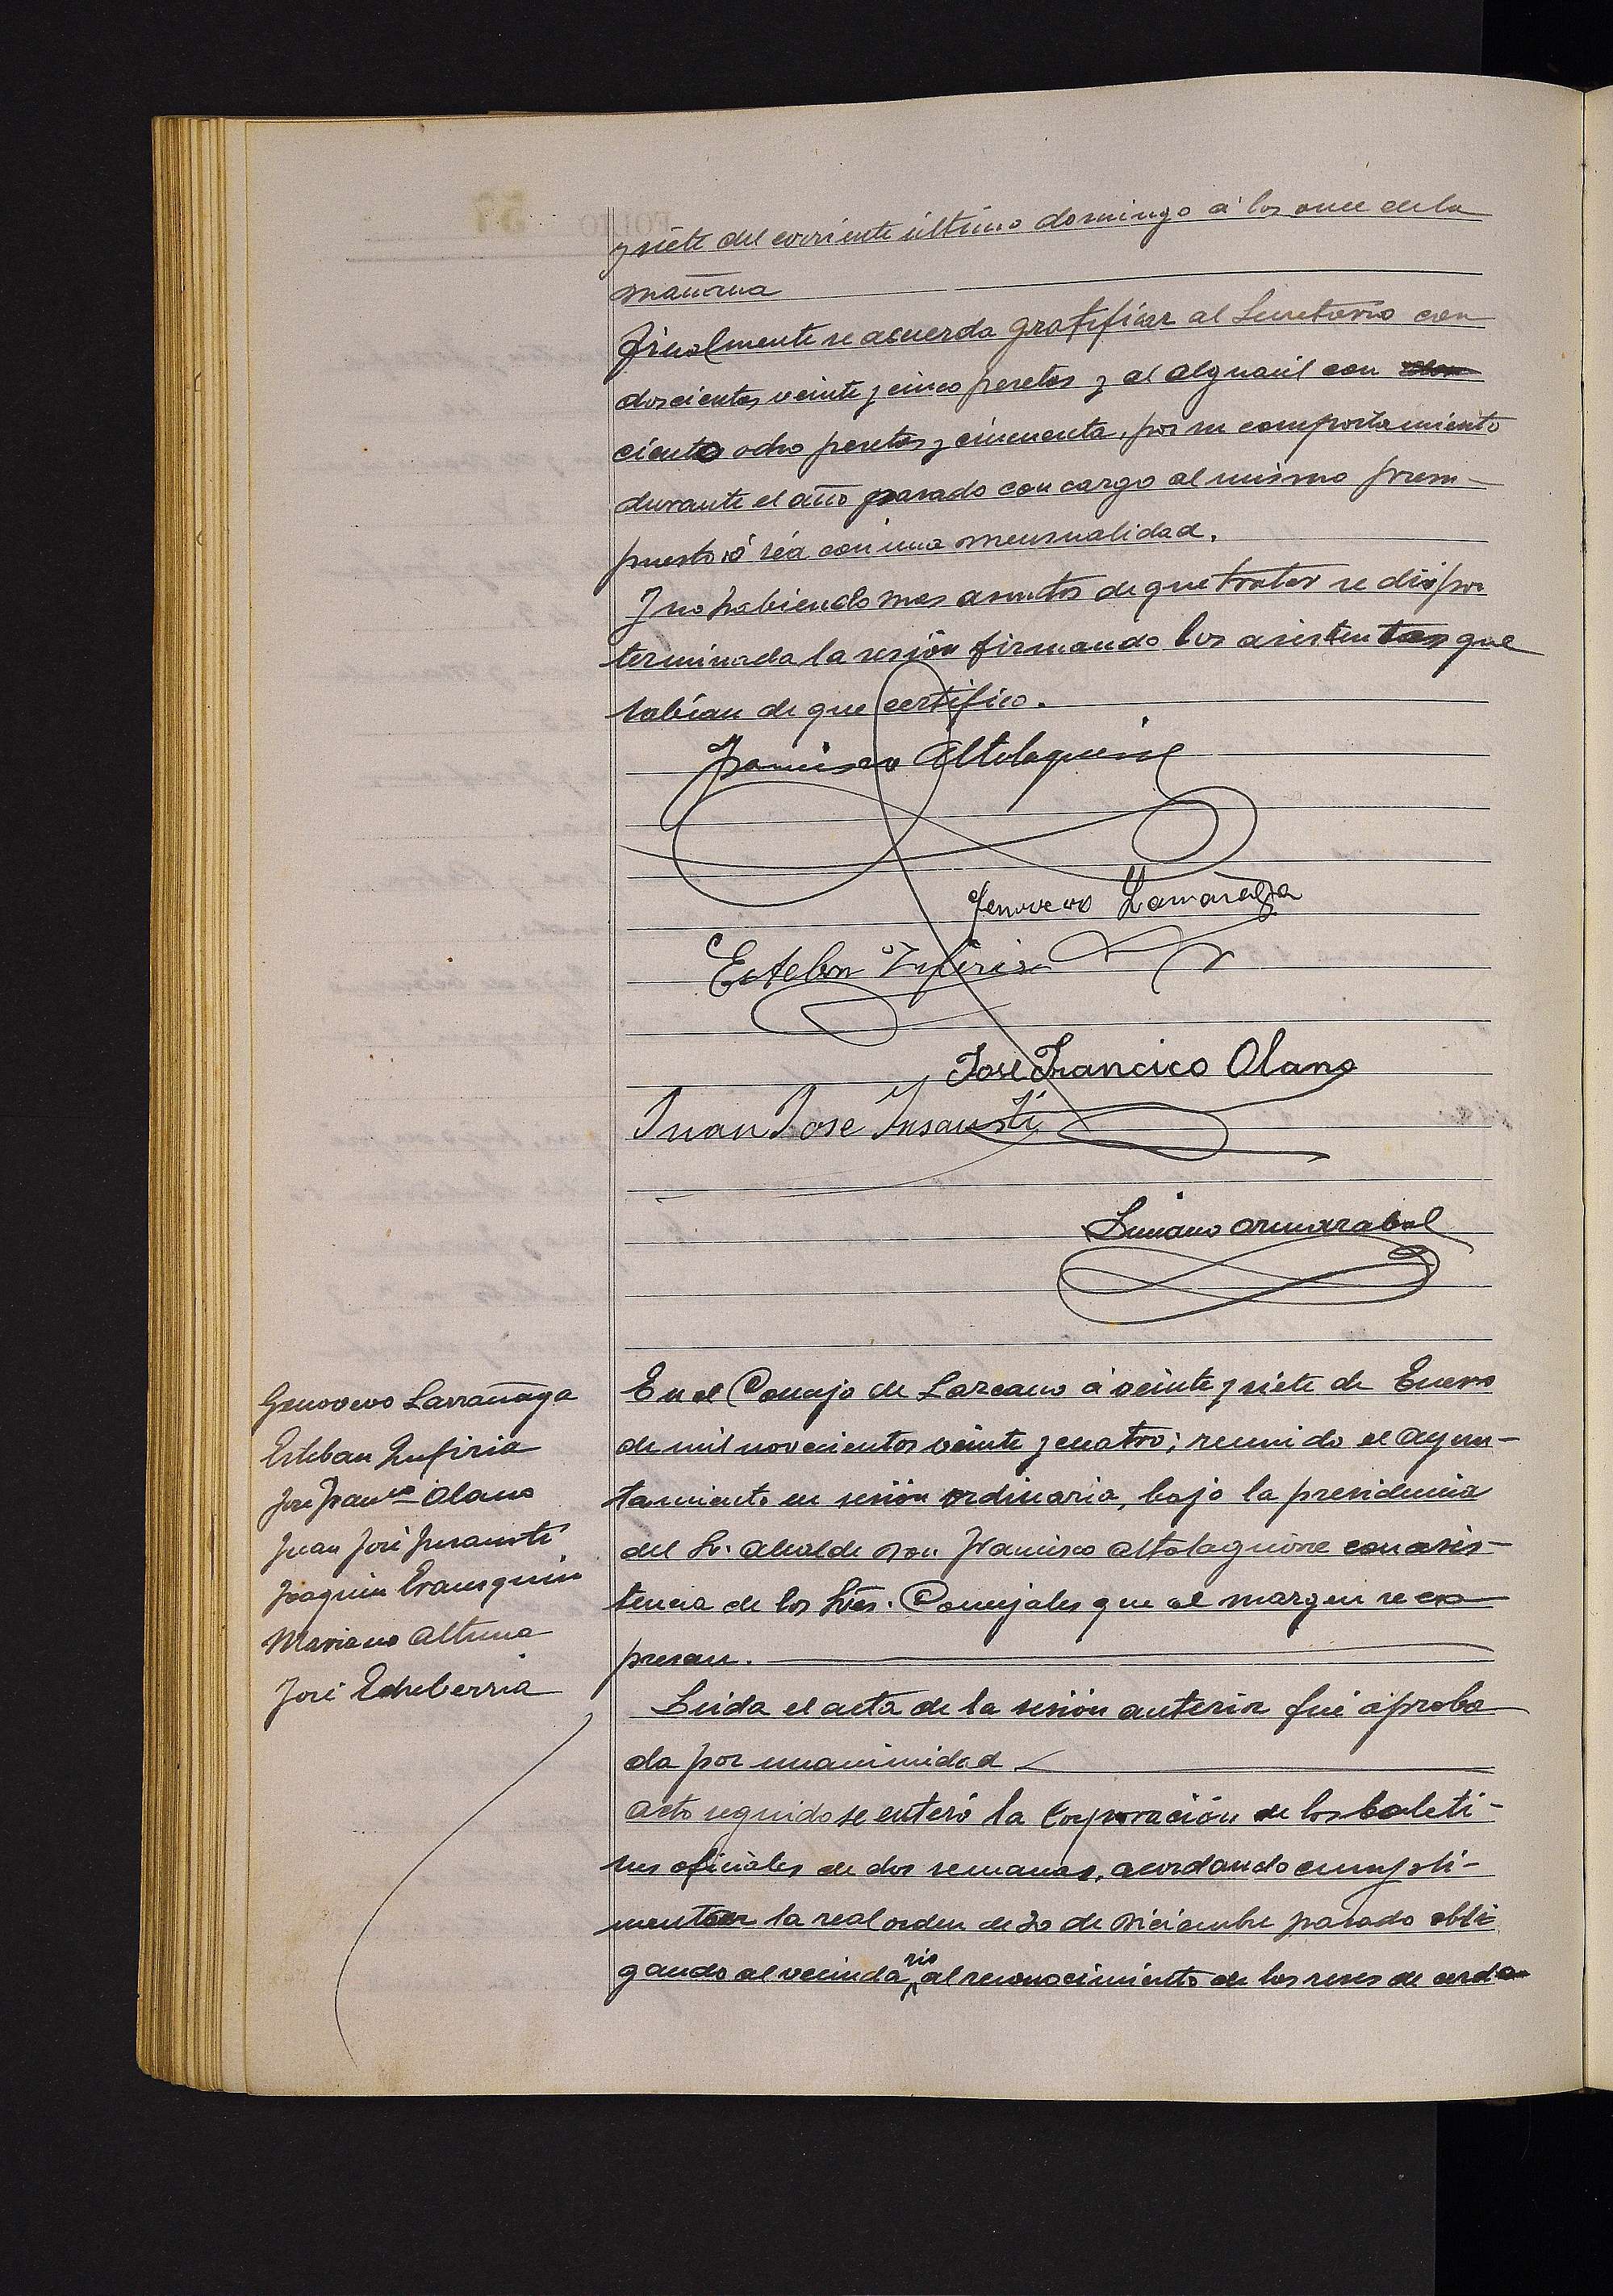 y siete del corriente último domingo á las once de la
mañana
Finalmente se acuerda gratificar al Secretario con
doscientas veinte y cinco pesetas y al alguacil con
ciento ocho pesetas y cincuenta, por su comportamiento
durante el año pasado con cargo al mismo presu-
puesto ó sea con una mensualidad.
Y no habiendo mas asuntos de que tratar se dió por
terminada la sesión firmando los asistentes que
sabían de que certifico.
Francisco Altolaguirre
Genovevo Larrañaga
Esteban Insfiria
José Francico Olano
Juan Jose Insausti
Luciano Aramabal
Genovevo Larrañaga
Esteban Insfiria
José Franco Olano
Juan José Insausti
Joaquin Erausquin
Mariano Altuna
José Echeberria
En el Concejo de Lazcano á veinte y siete de Enero
de mil novecientos veinte y cuatro; reunido el Ayun-
tamiento en sesión ordinaria, bajo la presidencia
del Sr. Alcalde Don Francisco Altolaguirre con asis-
tencia de los Sres. Concejales que al margen se ex
presan.
Leida el acta de la sesión anterior fué aproba
da por unanimidad
Acto seguido se enteró la Corporación de los boleti-
nes oficiales de dos semanas, acordando cumpli-
mentar la real orden de 20 de Diciembre pasado obli
gando al vecindario al reconocimiento de las reses de cerda